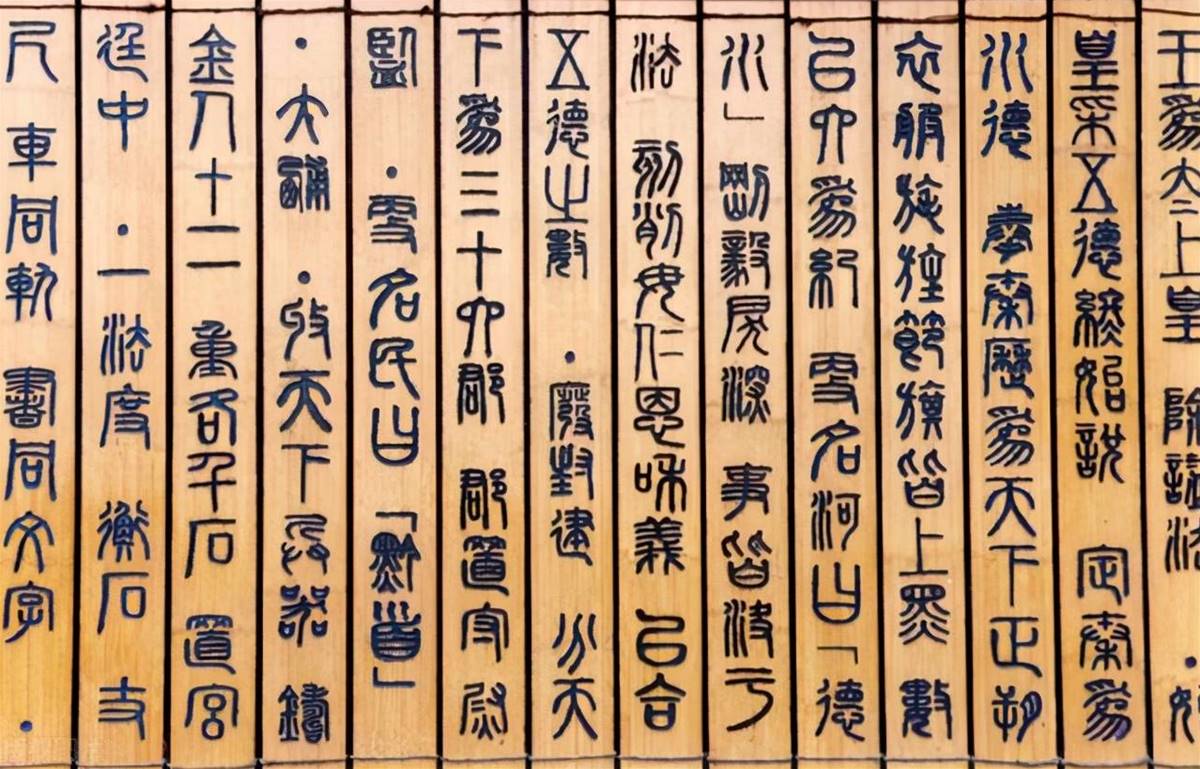 王爲太上皇 除謚法 ・始
皇采五德終始說 定秦爲
水德 奉秦曆爲天下正朔
衣服旄旌節旗皆上黑 數
以六爲紀 更名河曰「德
水」剛毅戾深 事皆決于
法 刻削毋仁恩和義 以合
五德之數 ・廢封建 分天
下爲三十六郡 郡置守尉
監 ・更名民曰「黔首」
・大酺 ・收天下兵器 鑄
金人十二 重各千石 置宮
廷中 ・一法度 衡石 丈
尺 車同軌 書同文字 ・